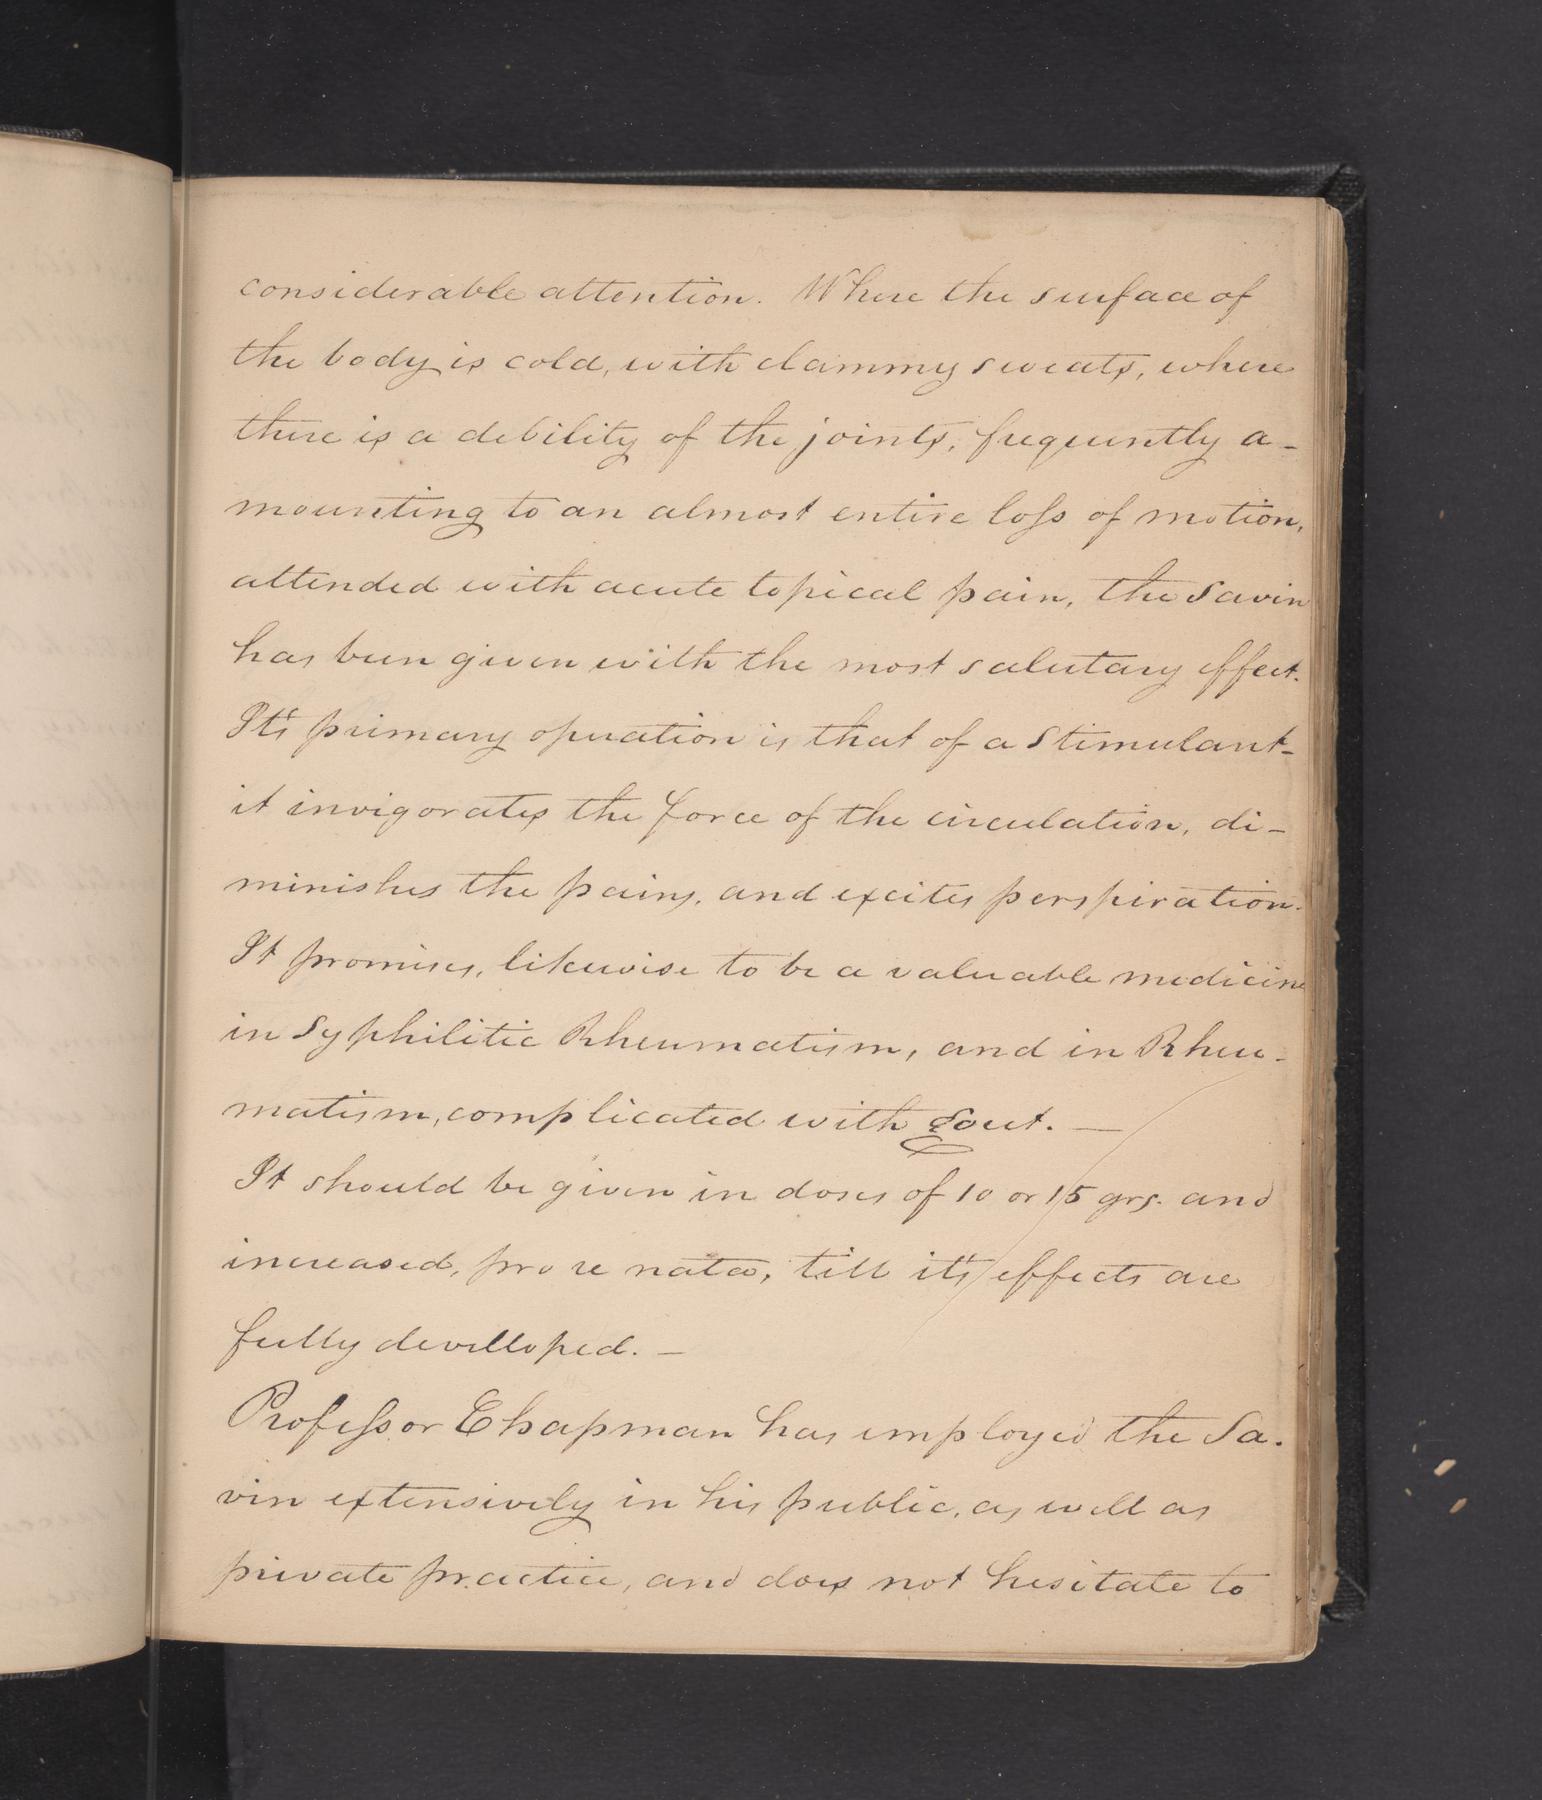 considerable attention. Where the surface of
the body is cold, with clammy sweats, where
there is a debility of the joints, frequently a-
mounting to an almost entire loss of motion,
attended with acute topical pain, the Savin
has been given with the most salutary effect.
It's primary operation is that of a Stimulant-
it invigorates the force of the circulation, di-
minishes the pains, and excites perspiration.
It promises, likewise to be a valuable medicine
in Syphilitic Rheumatism, and in Rheu-
matism, complicated with Gout. —
It should be given in doses of 10 or 15 grs. and
increased, pro re nata, till it's effects are
fully develloped. —
Professor Chapman has employed the Sa-
vin extensively in his public, as well as
private practice, and does not hesitate to